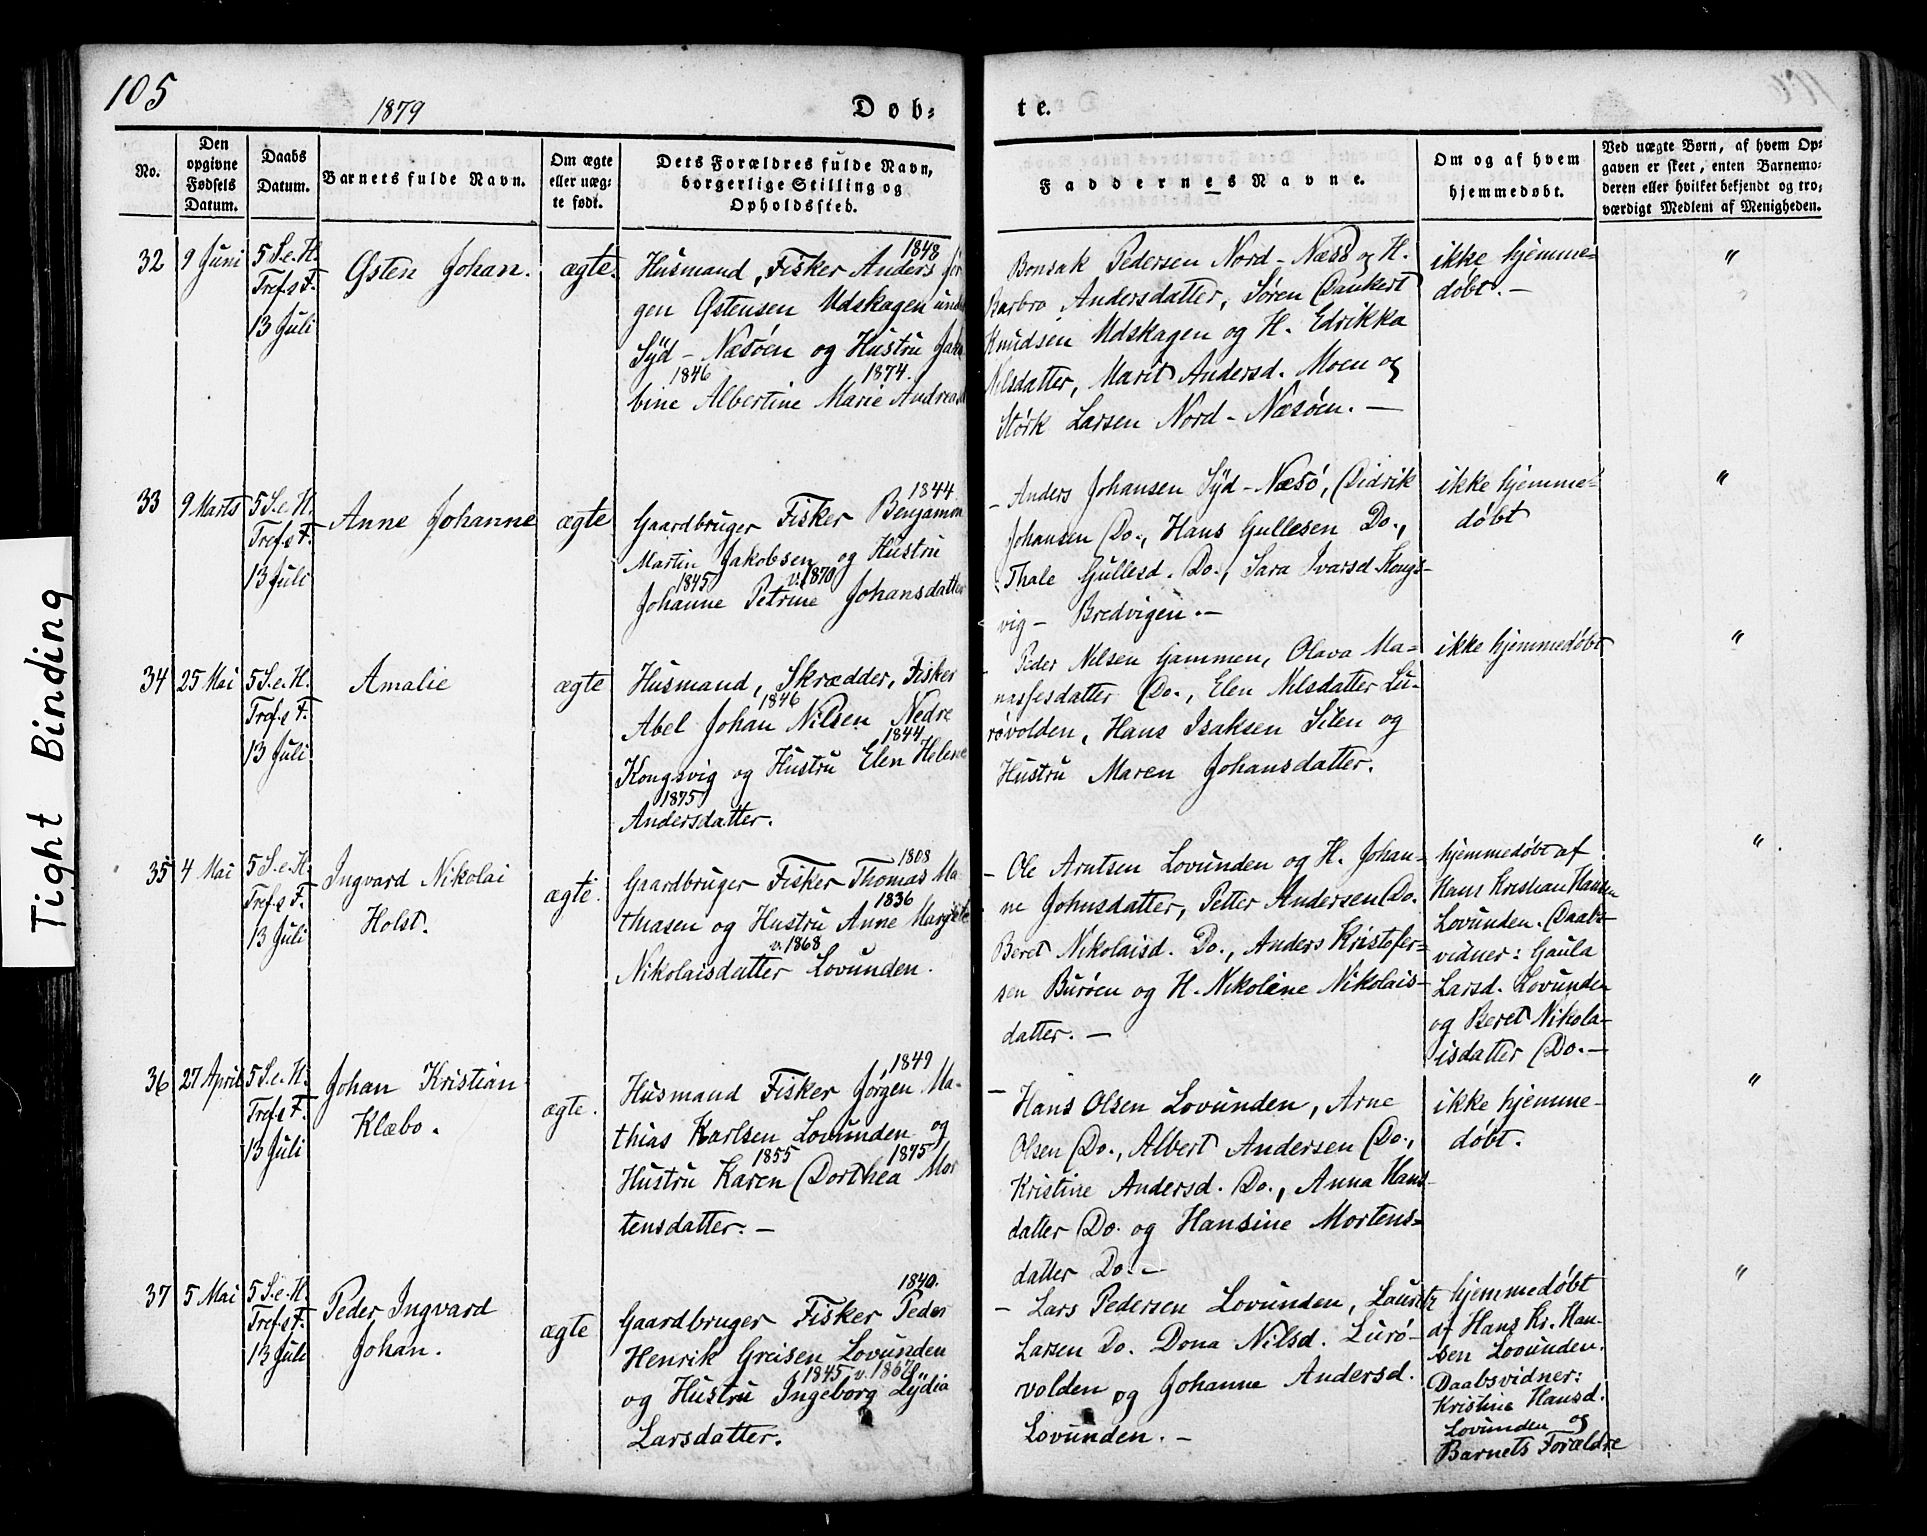 105
1879
Døb=
te.
No.
Den opgivne Fødsels Datum.
Daabs Datum.
Barnets fulde Navn.
Om ægte eller uæg= te født.
Dets Forældres fulde Navn, borgerlige Stilling og Opholdssted.
Faddernes Navne.
Om og af hvem hjemmedøbt.
Ved uægte Børn, af hvem Op= gaven er skeet, enten Barnemo= deren eller hvilket bekjendt og tro= værdigt Medlem af Menigheden.
32
9 Juni
5 S.e.H.
Tref.s F.
13 Juli
Østen Johan.
ægte.
1848
Husmand, Fisker Anders Jør
gen Østensen Udskagen und
Syd-Næsøen og Hustru Jako
1846 1874.
bine Albertine Marie Andreasd
Bonsak Pedersen Nord-Næsø og H.
Barbro Andersdatter, Søren Dankert
Knudsen Udskagen og H. Edrikka
Nilsdatter, Marit Andersd. Moen og
Størk Larsen Nord-Næsøen. —
ikke hjemme=
døbt. —
"
33
9 Marts
5 S.e.H.
Tref.s F.
13 Juli
Anne Johanne
ægte
1844.
Gaardbruger Fisker Benjamin
Martin Jakobsen og Hustru
1845 v.1870
Johanne Petrine Johansdatter
— Anders Johansen Syd-Næsø, Didrik
Johansen Do., Hans Gullesen Do.,
Thale Gullesd. Do., Sara Ivarsd Kongs-
vig - Bredvigen. —
ikke hjemme=
døbt
"
34
25 Mai
5 S.e.H.
Tref.s F.
13 Juli
Amalie
ægte
Husmand, Skrædder, Fisker
1846
Abel Johan Nilsen Nedre
1844
Kongsvig og Hustru Elen Helene
1875
Andersdatter.
— Peder Nilsen Gammen, Olava Ma=
nassesdatter Do., Elen Nilsdatter Lu-
røvolden, Hans Isaksen Silen og
Hustru Maren Johansdatter.
ikke hjemmedøbt
"
35
4 Mai
5 S.e.H.
Tref.s F.
13 Juli
Ingvard Nikolai
Holst.
ægte.
1808
Gaardbruger Fisker Thomas Ma
1836
thiasen og Hustru Anne Margrete
v.1868
Nikolaisdatter Lovunden.
— Ole Arntsen Lovunden og H. Johan-
ne Johnsdatter, Petter Andersen Do.
Beret Nikolaisd. Do., Anders Kristofer=
sen Burøen og H. Nikoline Nikolais-
datter. —
hjemmedøbt af
Hans Kristian Hansen
Lovunden. Daabs-
vidner: Gaula
Larsd. Lovunden
og Beret Nikola-
isdatter Do. —
"
36
27 April
5 S.e.H.
Tref.s F.
13 Juli
Johan Kristian
Klæbo.
ægte.
1849
Husmand Fisker Jørgen Ma-
thias Karlsen Lovunden og
1855 1875
Hustru Karen Dorthea Mor
tensdatter. —
— Hans Olsen Lovunden, Arne
Olsen Do., Albert Andersen Do.,
Kristine Andersd. Do., Anna Hans-
datter Do. og Hansine Mortens=
datter Do. —
ikke hjemme-
døbt.
"
37
5 Mai
5 S.e.H.
Tref.s F.
13 Juli
Peder Ingvard
Johan.
ægte
1840.
Gaardbruger Fisker Peder
Henrik Greisen Lovunden
1845 v.1867
og Hustru Ingeborg Lydia
Larsdatter.
— Lars Pedersen Lovunden, Lauritz
Larsen Do. Dona Nilsd. Lurø-
volden og Johanne Andersd.
Lovunden. —
hjemmedøbt
af Hans Kr. Han-
sen Lovunden.
Daabsvidner:
Kristine Hansd.
Lovunden og
Barnets Forældre
"
Tight Binding